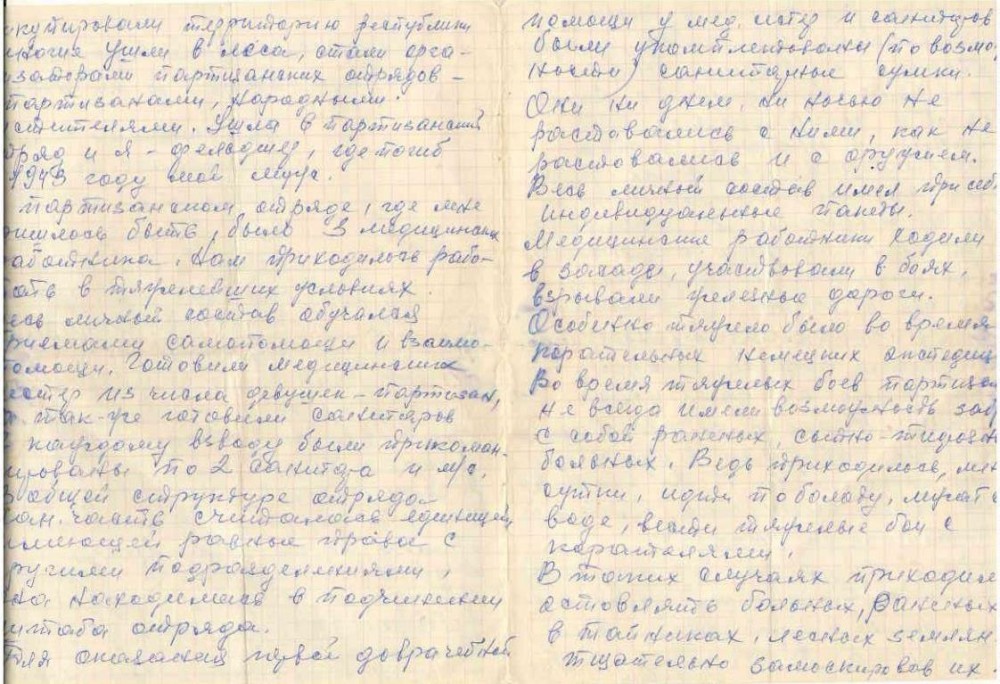 купировали территорию республики
многие ушли в леса, стали орга-
изаторами партизанских отрядов -
партизанами, народными
стителями. Ушла в партизанский
тряд и я - фельдшер, где погиб
1943 году мой муж.
партизанском отряде, где мне
ришлось быть, было 3 медицинских
аботника. Нам приходилось рабо-
тать в тяжелейших условиях.
есь личный состав обучался
приемами самопомощи и взаимо-
помощи. Готовили медицинских
сестер из числа девушек-партизан,
так-же готовили санитаров
каждому взводу были прикоман-
ированы по 2 санитара и м/с.
В общей структуре отряда
сан. часть считалась единицей
имеющей равные права с
ругими подразделениями,
на находилась в подчинении
штаба отряда.
Для оказания первой доврачебной
помощи у мед. сестер и санитаров
были укомплектованы (по возмо
ности) санитарные сумки.
Они ни днем, ни ночью не
расставались с ними, как не
расставались и с оружием.
Весь личный состав имел при себ
индивидуальные пакеты.
Медицинские работники ходили
в засады, участвовали в боях,
взрывали железные дороги.
Особенно тяжело было во время
карательных немецких экспедиц
Во время тяжелых боев партизан
не всегда имели возможность заб
с собой раненых, сыпно тифозн
больных. Ведь приходилось,
сутки, идти по болоту,
воде, вести тяжелые бои с
карателями.
В таких случаях приходил
оставлять больных, раненых
в тайниках, лесных землян
тщательно замаскировав их.